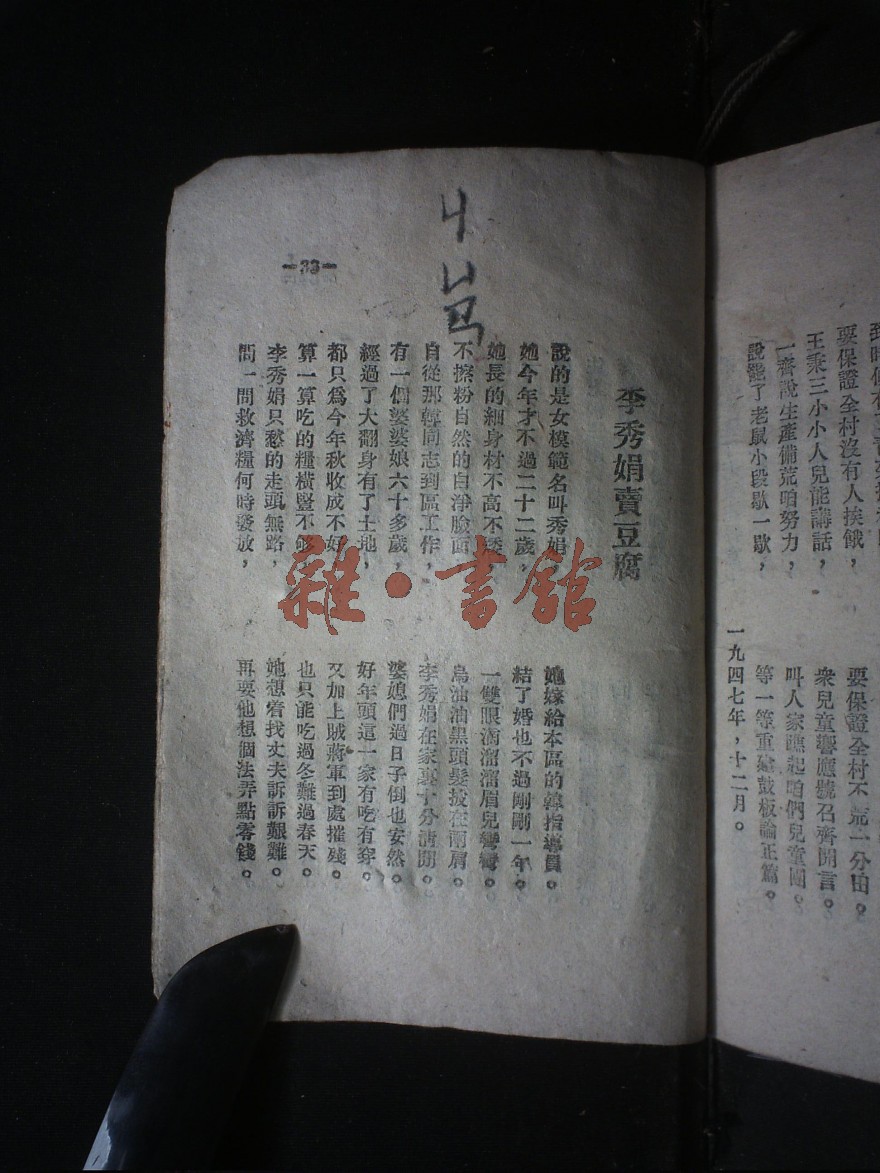 要保證全村沒有人挨餓， 要保證全村不荒一分田。
王秉三小小人兒能講話， 衆兒童響應號召齊開言。
一齊說生產備荒咱努力， 叫人家瞧起咱們兒童團。
說罷了老鼠小段歇一歇， 等一等重敲鼓板論正篇。
一九四七年，十二月。
李秀娟賣豆腐
說的是女模範名叫秀娟， 她嫁給本區的韓指導員。
她今年才不過二十二歲， 結了婚也不過剛剛一年。
她長的細身材不高不矮， 一雙眼滴溜溜眉兒彎彎。
不擦粉自然的白淨臉面， 烏油油黑頭髮披在兩肩。
自從那韓同志到區工作， 李秀娟在家裏十分清閒。
有一個婆婆娘六十多歲， 婆媳們過日子倒也安然。
經過了大翻身有了土地， 好年頭這一家有吃有穿。
都只爲今年秋收成不好， 又加上賊蔣軍到處摧殘。
算一算吃的糧橫豎不够， 也只能吃過冬難過春天。
李秀娟只愁的走頭無路， 她想着找丈夫訴訴艱難。
問一問救濟糧何時發放， 再要他想個法弄點零錢。
—33—
雜·書館